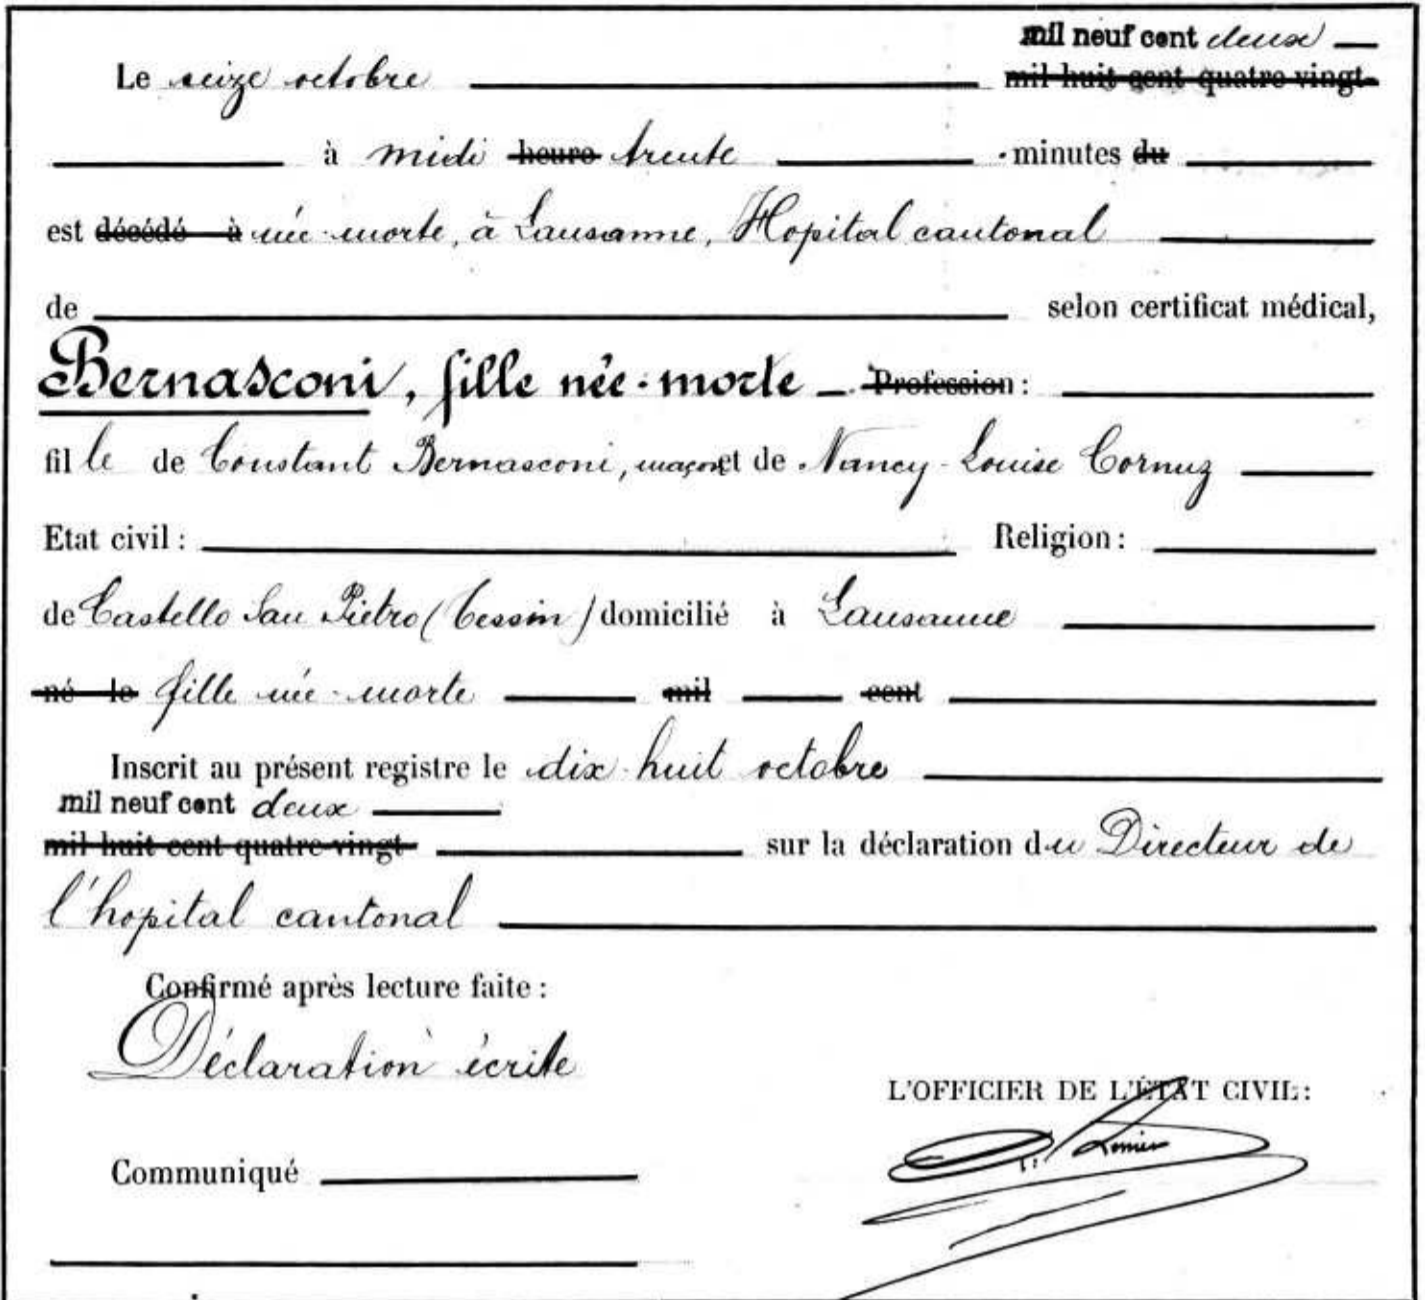 mil neuf cent deux
Le seize octobre mil huit cent quatre-vingt-
à midi heure trente minutes du
est décédé à née-morte, à Lausanne, Hopital cantonal
de selon certificat médical,
Bernasconi, fille née-morte Profession:
fille de Constant Bernasconi, maçon et de Nancy-Louise Cornuz
Etat civil: Religion:
de Castello San Pietro (Tessin) domicilié à Lausanne
né le fille née-morte mil cent
Inscrit au présent registre le dix-huit octobre
mil neuf cent deux
mil huit cent quatre-vingt- sur la déclaration du Directeur de
l'hopital cantonal
Confirmé après lecture faite:
Déclaration écrite
L'OFFICIER DE L'ÉTAT CIVIL:
Communiqué